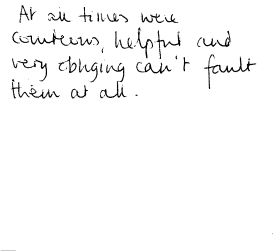 At all times were
courteous, helpful and
very obliging can't fault
them at all.